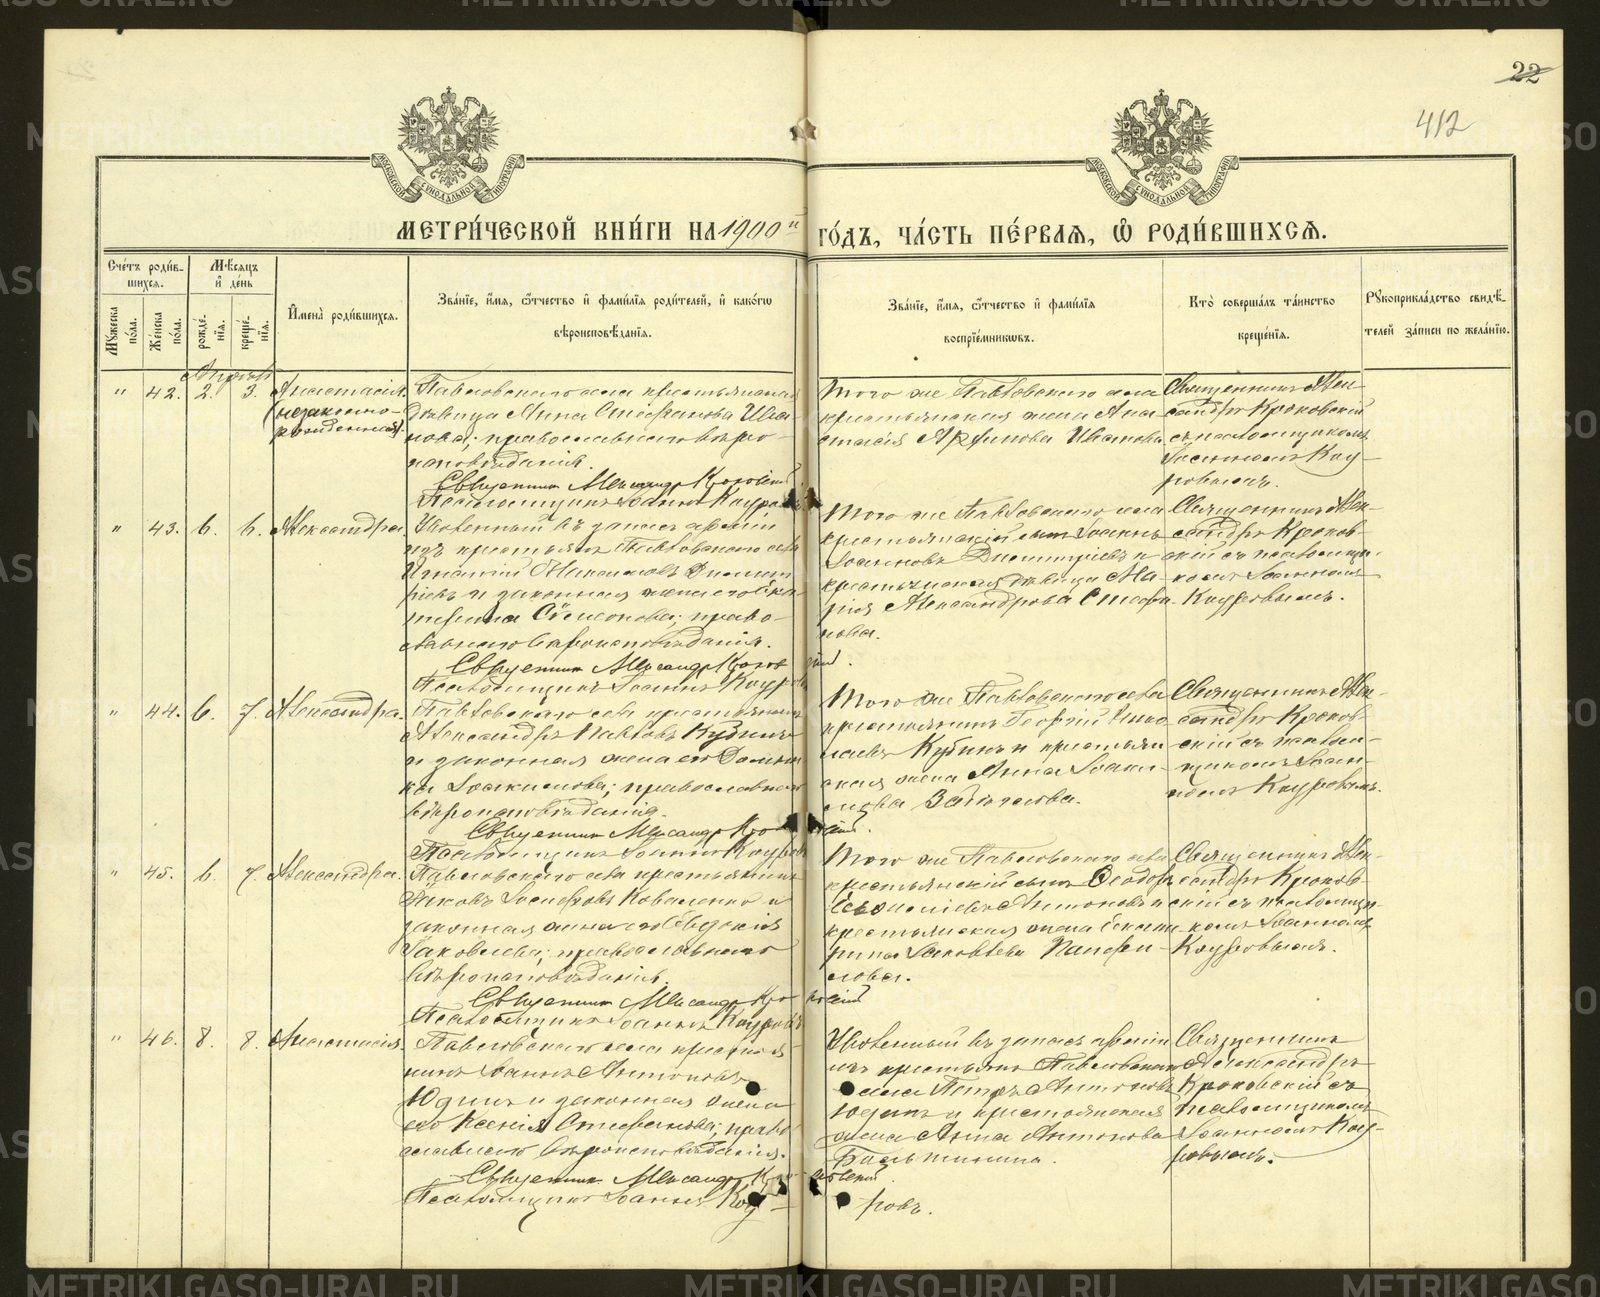 22
412
МОСКОВСКОЙ СѴНОДАЛЬНОЙ ТИПОГРАФІИ
МОСКОВСКОЙ СѴНОДАЛЬНОЙ ТИПОГРАФІИ
МЕТРИ́ЧЕСКОЙ КНИ́ГИ НА 1900 й го́дъ, ча́сть пе́рвая, ѡ҆ роди́вшихся.
Сче́тъ роди́в-
шихся.
Мѹжеска по́ла.
Же́нска по́ла.
Мѣ́сяцъ
и҆ де́нь
рожде́-
нія.
креще́-
нія.
И҆мена̀ роди́вшихся.
Зва́ніе, и҆́мя, ѻ҆́тчество и҆ фами́лія роди́телей, и҆ како́гѡ
вѣроисповѣ́данія.
Зва́ніе, и҆́мя, ѻ҆́тчество и҆ фами́лія
воспріе́мниковъ.
Кто̀ соверша́лъ та́инство
креще́нія.
Рѹкоприкла́дство свидѣ́-
телей за́писи по жела́нію.
Апрѣль
" 42. 2. 3. Анастасія
(незаконно-
рожденная).
Павловскаго села крестьянская
дѣвица Анна Стефанова Ива-
нова; православнаго вѣро-
исповѣданія.
Священникъ Александръ Кроковскій
Псаломщикъ Іоаннъ Кауровъ
Того же Павловскаго села
крестьянская жена Ана-
стасія Иванова.
Священникъ Алек-
сандръ Кроковскій
съ псаломщикомъ
Іоанномъ Кау-
ровымъ.
" 43. 6. 6. Александра.
Уволенный въ запасъ арміи
изъ крестьянъ Павловскаго села
Игнатій Димит-
ріевъ и законная жена его Ека-
терина Симеонова; право-
славнаго вѣроисповѣданія.
Священникъ Александръ Кроковскій.
Псаломщикъ Іоаннъ Кауровъ
Того же Павловскаго села
крестьянскій сынъ Іоаннъ
Іоанновъ Димитріевъ и
крестьянская дѣвица Ма-
рія Александрова Стефа-
нова.
Священникъ Алек-
сандръ Кроков-
скій съ псаломщи-
комъ Іоанномъ
Кауровымъ.
" 44. 6. 7. Александра.
Павловскаго села крестьянинъ
Александръ Павловъ Кубинъ
и законная жена его Домни-
ка Іоакимова; православнаго
вѣроисповѣданія.
Священникъ Александръ Кроковскій.
Псаломщикъ Іоаннъ Кауровъ
Того же Павловскаго села
крестьянинъ Георгій Нико-
лаевъ Кубинъ и крестьян-
ская жена Анна Іоаки-
мова
Священникъ Алек-
сандръ Кроков-
скій съ псалом-
щикомъ Іоан-
номъ Кауровымъ.
" 45. 6. 7. Александра.
Павловскаго села крестьянинъ
Іаковъ Іосифовъ Коваленко и
законная жена его Евдокія
Іаковлева; православнаго
вѣроисповѣданія.
Священникъ Александръ Кроковскій
Псаломщикъ Іоаннъ Кауровъ
Того же Павловскаго села
крестьянскій сынъ Ѳеодоръ
Антоновъ и
крестьянская жена Екате-
рина Іаковлева Панфи-
лова.
Священникъ Алек-
сандръ Кроков-
скій съ псаломщи-
комъ Іоанномъ
Кауровымъ.
" 46. 8. 8. Анастасія.
Павловскаго села крестья-
нинъ Іоаннъ Антоновъ
Юдинъ и законная жена
его Ксенія Стефанова; право-
славнаго вѣроисповѣданія.
Священникъ Александръ Кроковскій
Псаломщикъ Іоаннъ Кау-
ровъ.
Уволенный въ запасъ арміи
изъ крестьянъ Павловскаго
села Петръ Антоновъ
Юдинъ и крестьянская
жена Анна Антонова
Священникъ
Александръ
Кроковскій съ
псаломщикомъ
Іоанномъ Кау-
ровымъ.
METRIKI.GASO-URAL.RU